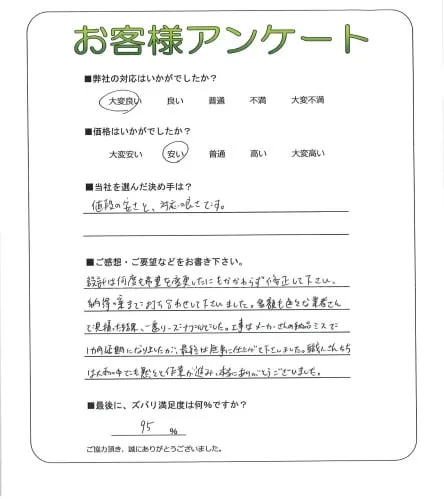 お客様アンケート
■弊社の対応はいかがでしたか?
大変良い 良い 普通 不満 大変不満
■価格はいかがでしたか?
大変安い 安い 普通 高い 大変高い
■当社を選んだ決め手は?
値段の安さと、対応の良さです。
■ご感想・ご要望などをお書き下さい。
設計は何度も希望を変更したにもかかわらず修正して下さい、
納得の行くまで打ち合わせして下さいました。金額も色々な業者さん
で見積った結果、一番リーズナブルでした。工事はメーカーさんの納品ミスで
1カ月延期になりましたが、最終は無事に仕上げて下さいました。職人さんたち
は大雨の中でも黙々と作業が進み、本当にありがとうございました。
■最後に、ズバリ満足度は何%ですか?
95 %
ご協力頂き、誠にありがとうございました。